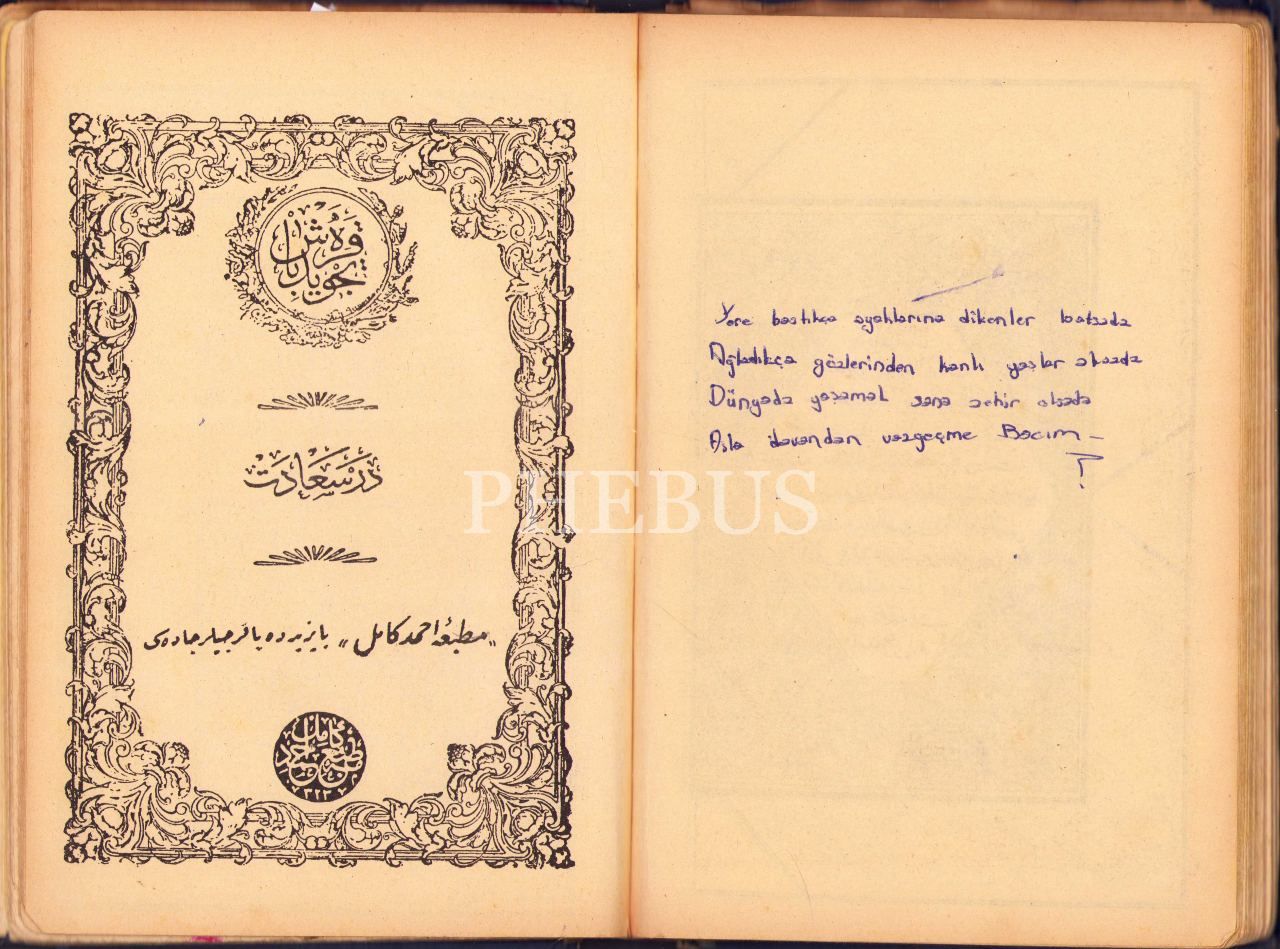 قره باش
تجويدى
درسعادت
«مطبعۀ احمد كامل» بايزيدده پاقرجيلر جاده سى
PHEBUS
Yere bastıkça ayaklarına dikenler batsada
Ağladıkça gözlerinden kanlı yaşlar aksada
Dünyada yaşamak sana zehir olsada
Asla davandan vazgeçme Bacım _